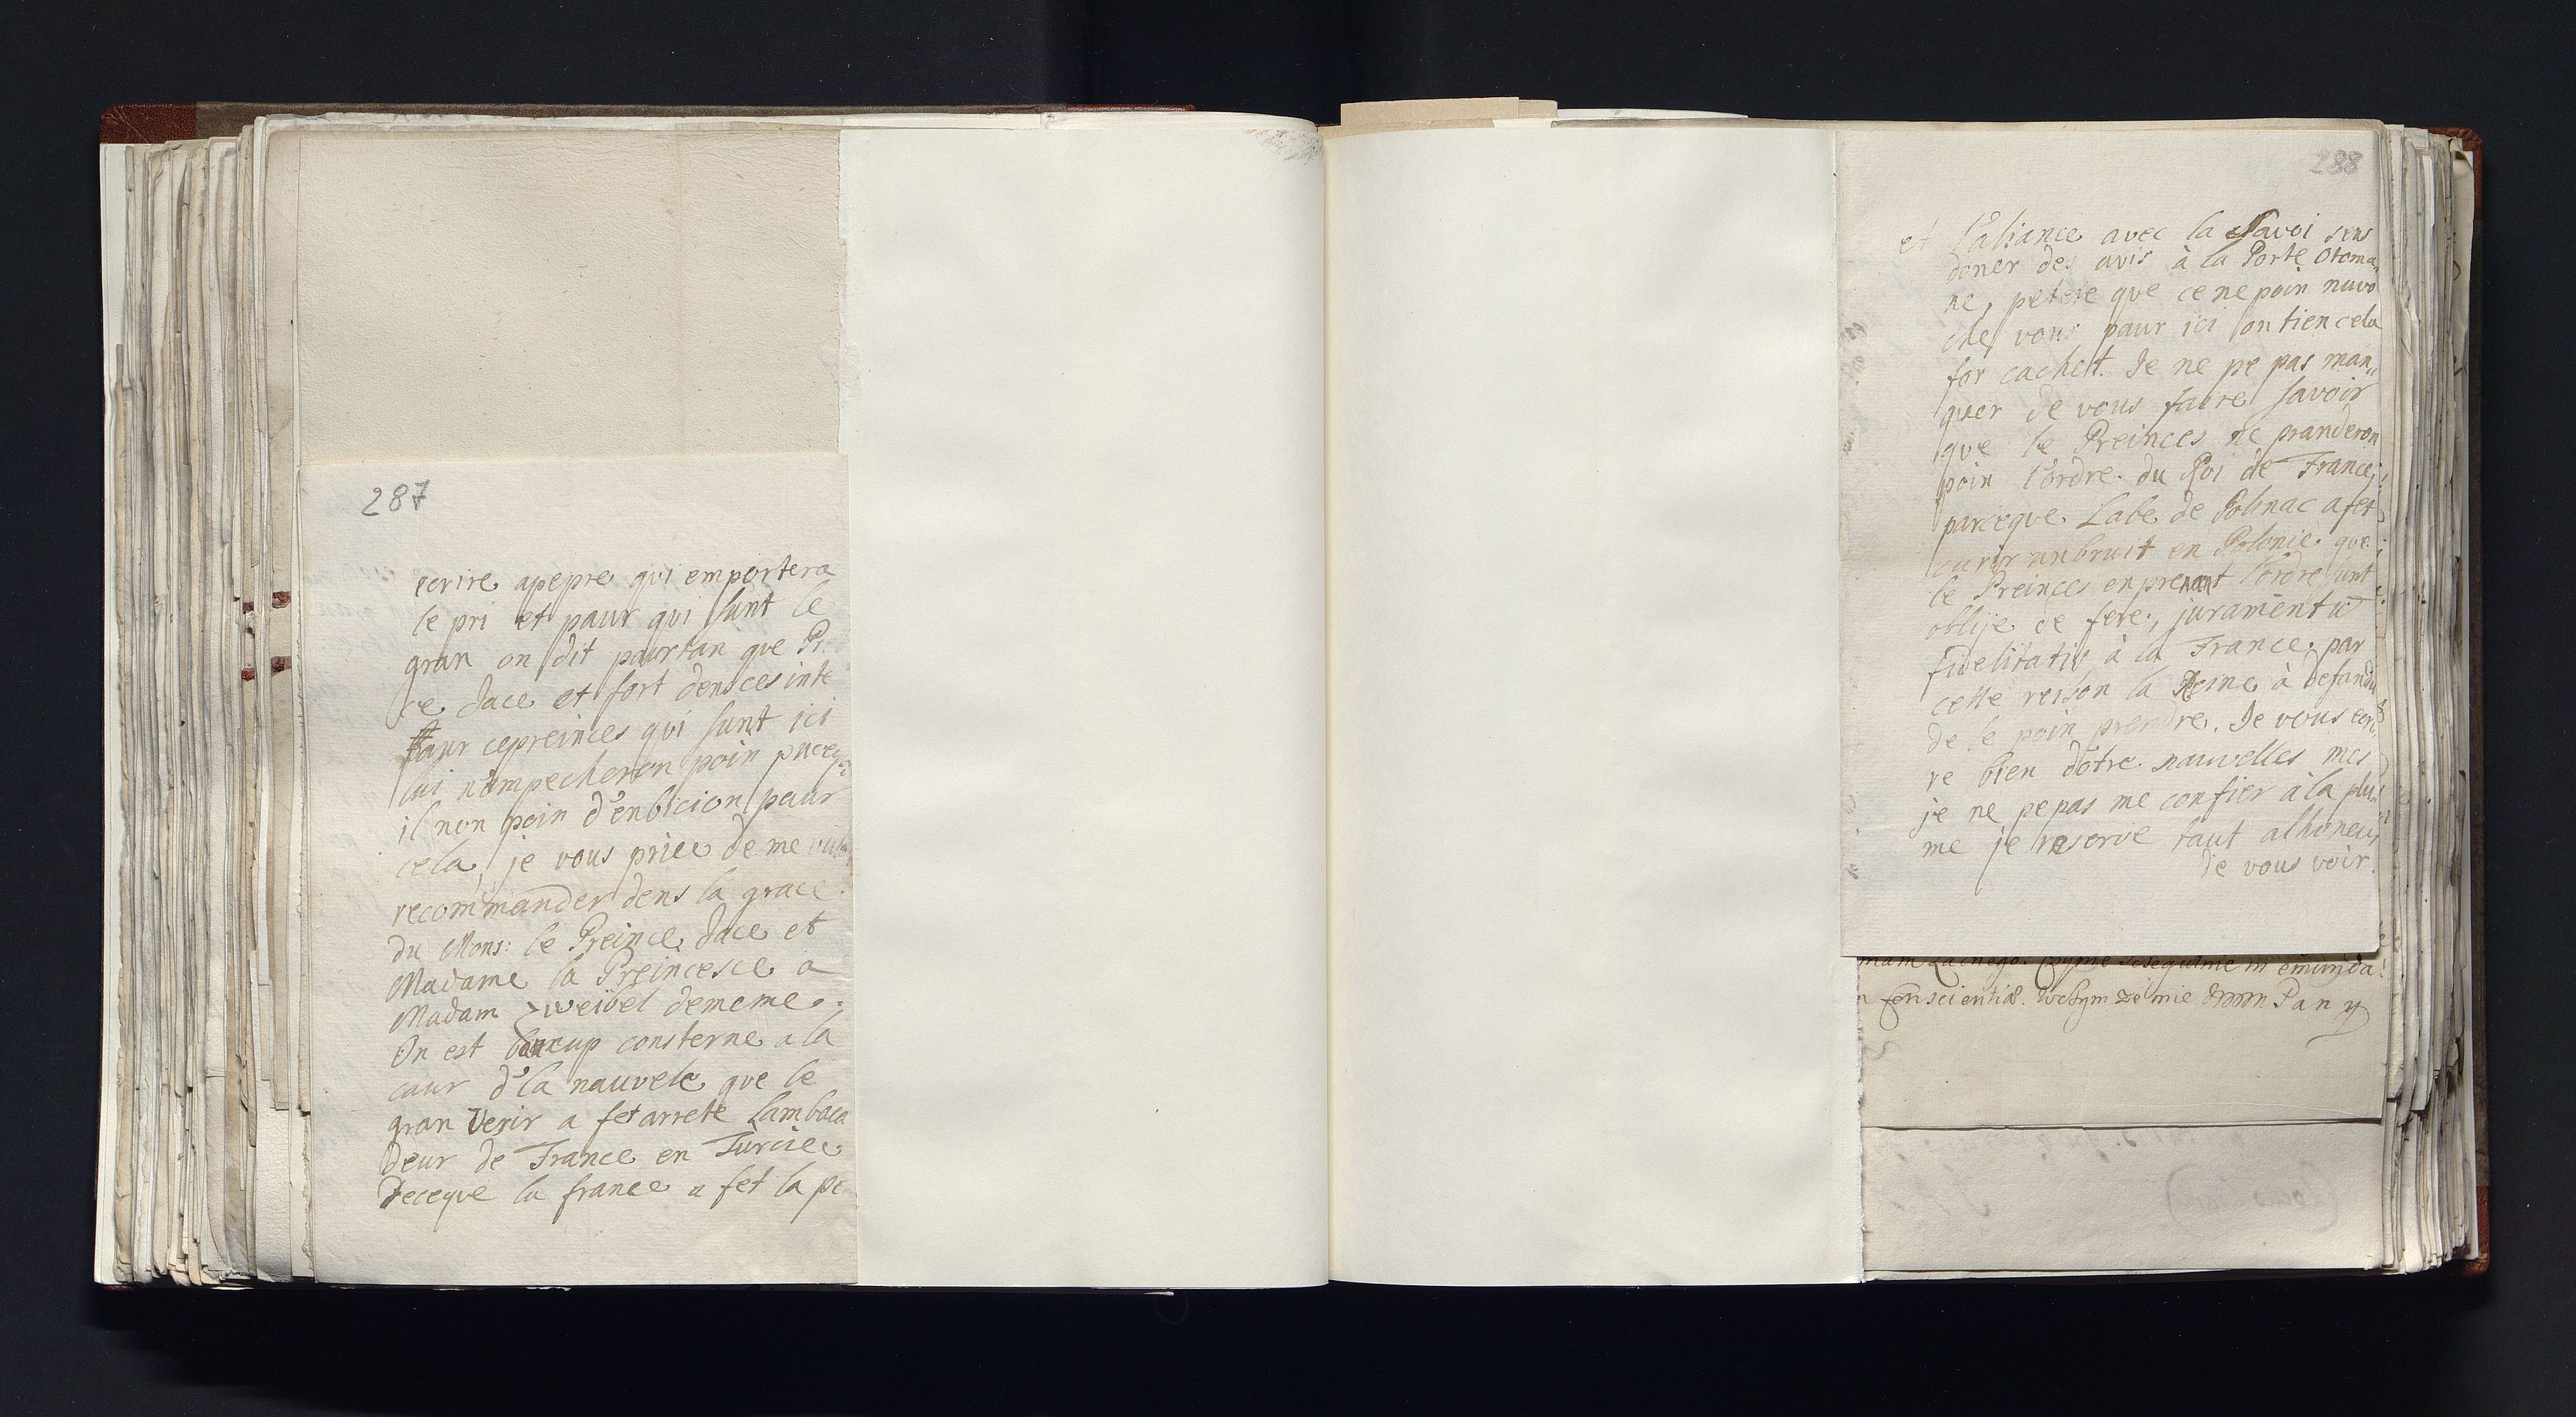 287
ecrire apepre qui emportera
le pri et paur qui sunt le
gran on dit paurtan que Pr
ce Jace et fort dens ces inte
Paur cepreinces qui sunt ici
lui n'empecheron poin puce
il non poin d'enbicion paur
cela, je vous priee de me
recommander dens la grace
du Mons: le Preince Jace et
Madame la Preincesce a
Madam Zweibel dememe.
On est baucup consterne a la
caur d'la nauvele que le
gran Vesir a fet arrete Lambaca
deur de France en Turciee
deceque la france a fet la pe
288
et l'aliance avec la Savoi sens
doner des avis à la Porte Otoma„
ne, petere que ce ne poin nuvo
che vous paur ici on tien cela
for cachet. Je ne pe pas man„
quer de vous faire savoir
que le Preinces ne pranderon
poin l'ordre du Roi de France,
parceque Labe de Polinac a fet
curir un bruit en Polonie que
le Preinces en prenant l'ordre sunt
oblije de fere, juramentū
fidelitatis à la France. par
cette reison la Reine à defandu
de le poin prendre. Je vous ecri„
re bien dotre nauvelles mes
je ne pe pas me confier à la plu„
me je reserve taut alhoneur
de vous voir.
in emunda„
Pan y